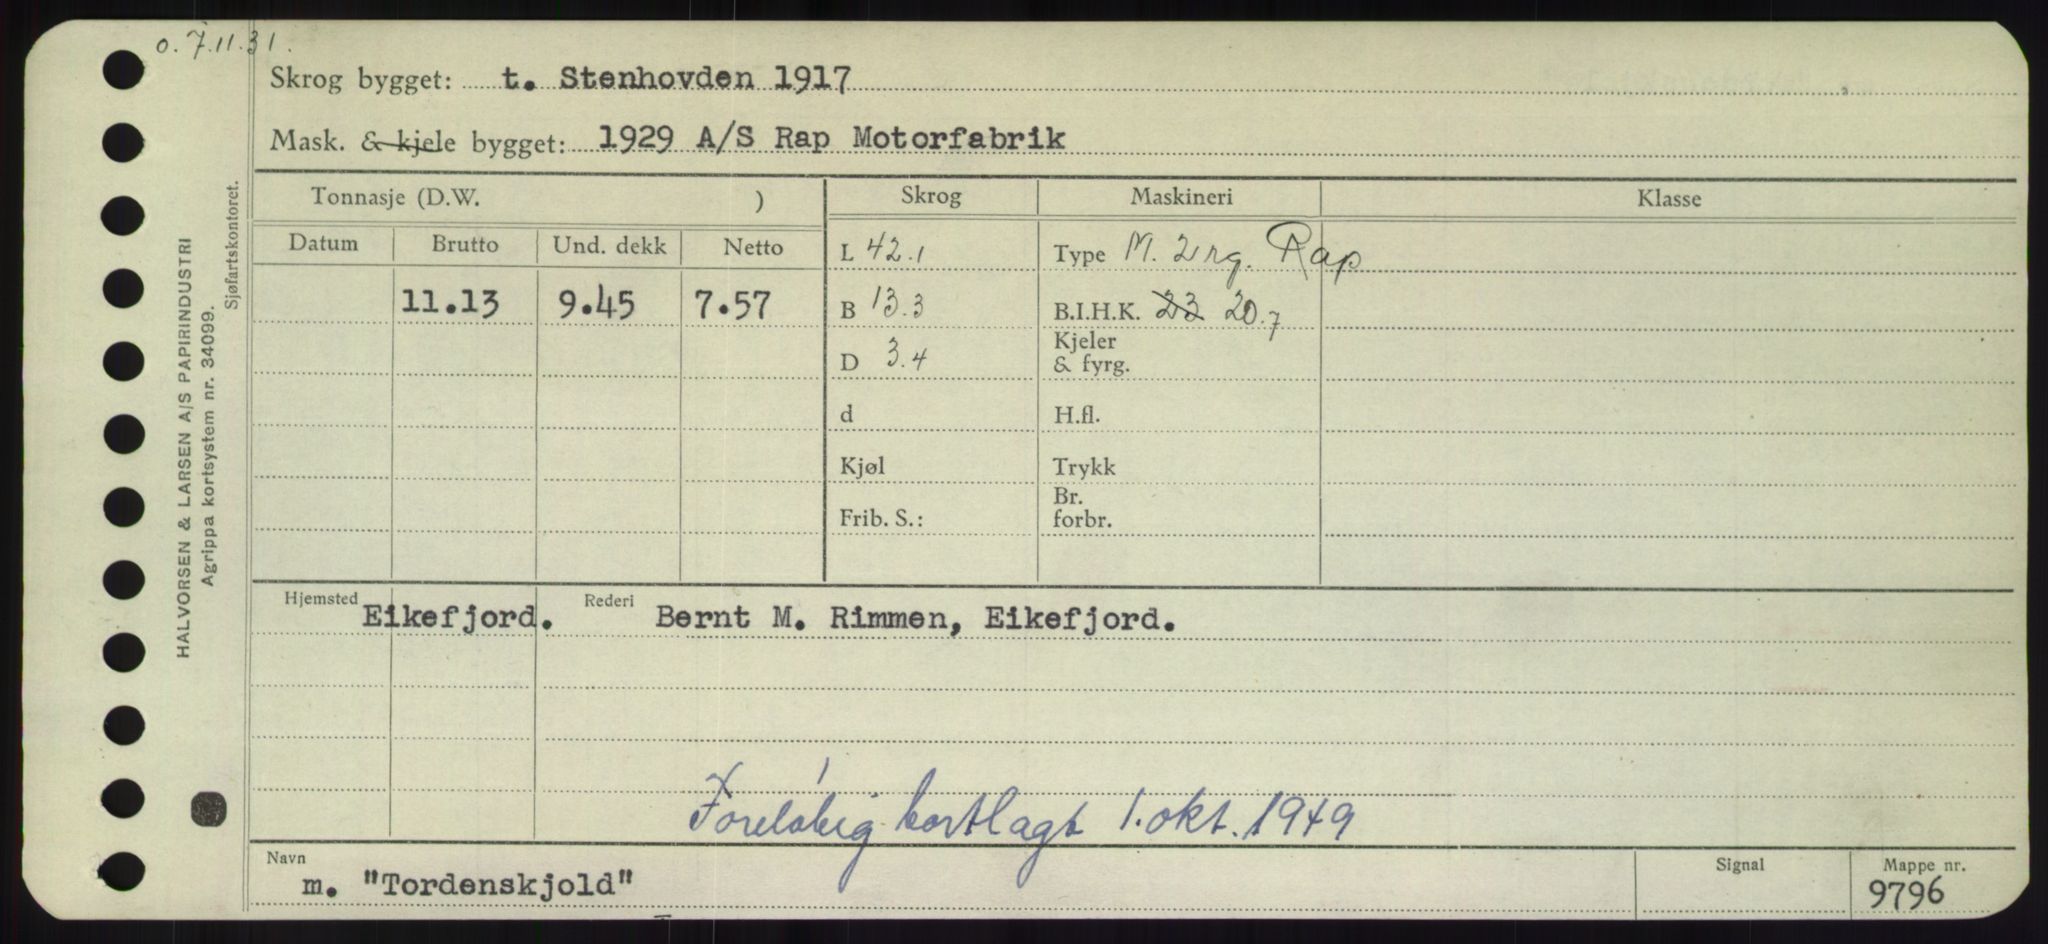 o. 7.11.31.
Skrog bygget: t. Stenhovden 1917
Mask. & kjele bygget: 1929 A/S Rap Motorfabrik
Tonnasje (D.W. ) Skrog Maskineri Klasse
Datum Brutto Und. dekk Netto
L 42.1 Type M. 2 rg. Rap
11.13 9.45 7.57 B 13.3 B.I.H.K. 23 20.7
D 3.4 Kjeler
& fyrg.
d H.fl.
Kjøl Trykk
Frib. S.: Br.
forbr.
Hjemsted Eikefjord. Rederi Bernt M. Rimmen, Eikefjord.
Foreløbig bortlagt 1. okt. 1949
Navn Signal Mappe nr.
m. "Tordenskjold" 9796
HALVORSEN & LARSEN A/S PAPIRINDUSTRI
Agrippa kortsystem nr. 34099.
Sjøfartskontoret.